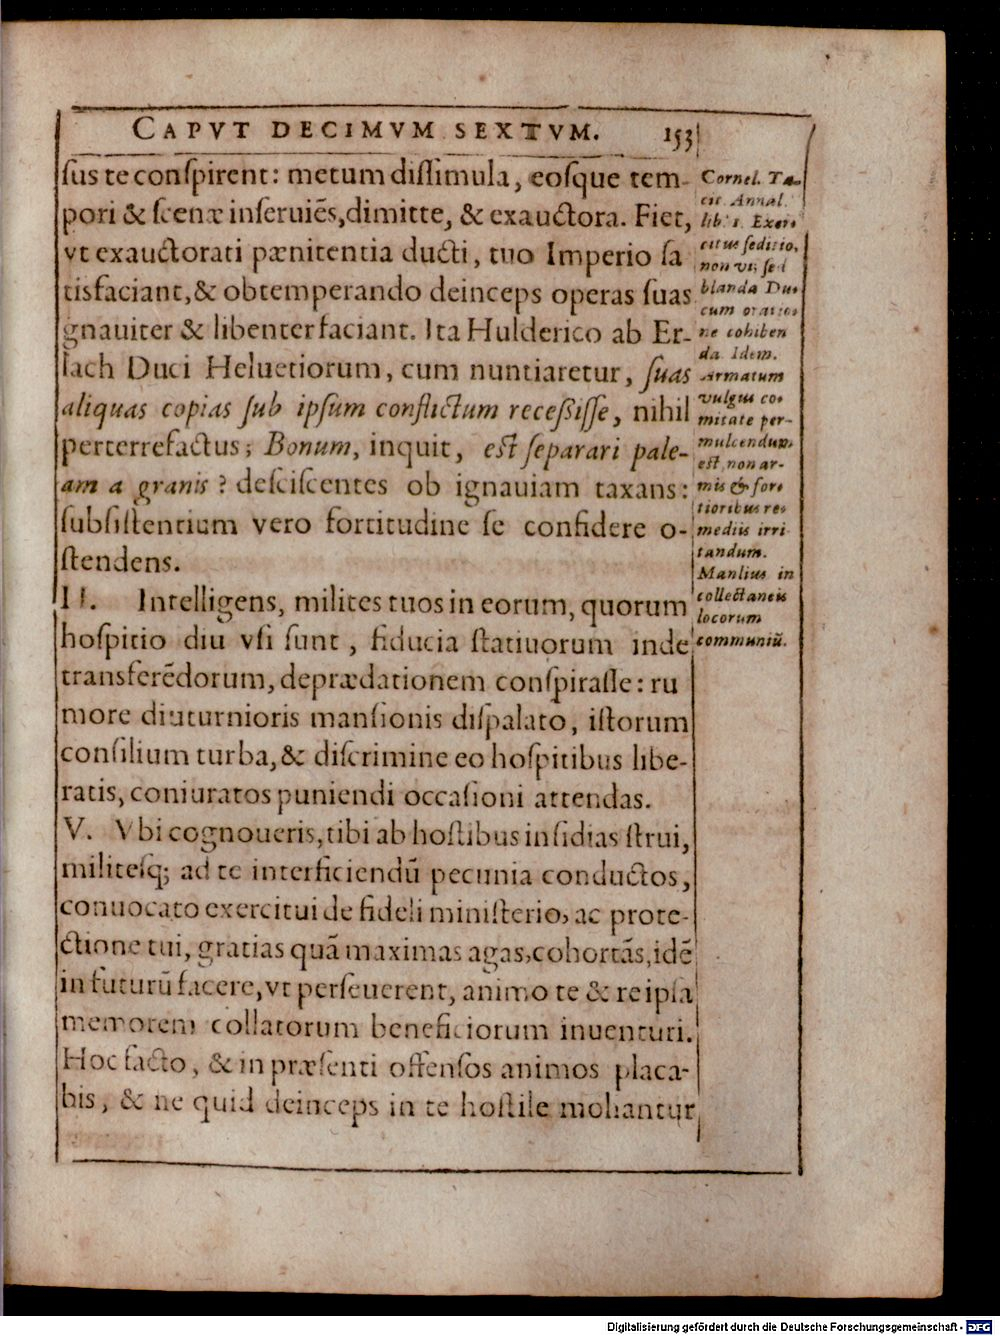 CAPVT DECIMVM SEXTVM. 153
ſus te conſpirent: metum diſſimula, eoſque tem-
pori & ſcenæ inſeruiẽs, dimitte, & exauctora. Fiet,
vt exauctorati pænitentia ducti, tuo Imperio ſa
tisfaciant, & obtemperando deinceps operas ſuas
gnauiter & libenter faciant. Ita Hulderico ab Er-
lach Duci Heluetiorum, cum nuntiaretur, ſuas
aliquas copias ſub ipſum conflictum receßiſſe, nihil
perterrefactus; Bonum, inquit, eſt ſeparari pale-
am a granis? deſciſcentes ob ignauiam taxans:
ſubſiſtentium vero fortitudine ſe confidere o-
ſtendens.
II. Intelligens, milites tuos in eorum, quorum
hoſpitio diu vſi ſunt, fiducia ſtatiuorum inde
transferẽdorum, deprædationem conſpiraſſe: ru
more diuturnioris manſionis diſpalato, iſtorum
conſilium turba, & diſcrimine eo hoſpitibus libe-
ratis, coniuratos puniendi occaſioni attendas.
V. Vbi cognoueris, tibi ab hoſtibus inſidias ſtrui,
militeſq; ad te interficiendũ pecunia conductos,
conuocato exercitui de fideli miniſterio, ac prote-
ctione tui, gratias quã maximas agas, cohortãs, idẽ
in futurũ facere, vt perſeuerent, animo te & reipſa
memorem collatorum beneficiorum inuenturi.
Hoc facto, & in præſenti offenſos animos placa-
bis, & ne quid deinceps in te hoſtile moliantur,
Cornel. Ta-
cit. Annal.
lib. 1. Exer-
citus ſeditio,
non vi; ſed
blanda Du-
cum oratio-
ne cohiben
da. Idem.
Armatum
vulgus co-
mitate per-
mulcendum
eſt, non ar-
mis & for-
tioribus re-
mediis irri
tandum.
Manlius in
collectaneis
locorum
communiũ.
Digitalisierung gefördert durch die Deutsche Forschungsgemeinschaft - DFG